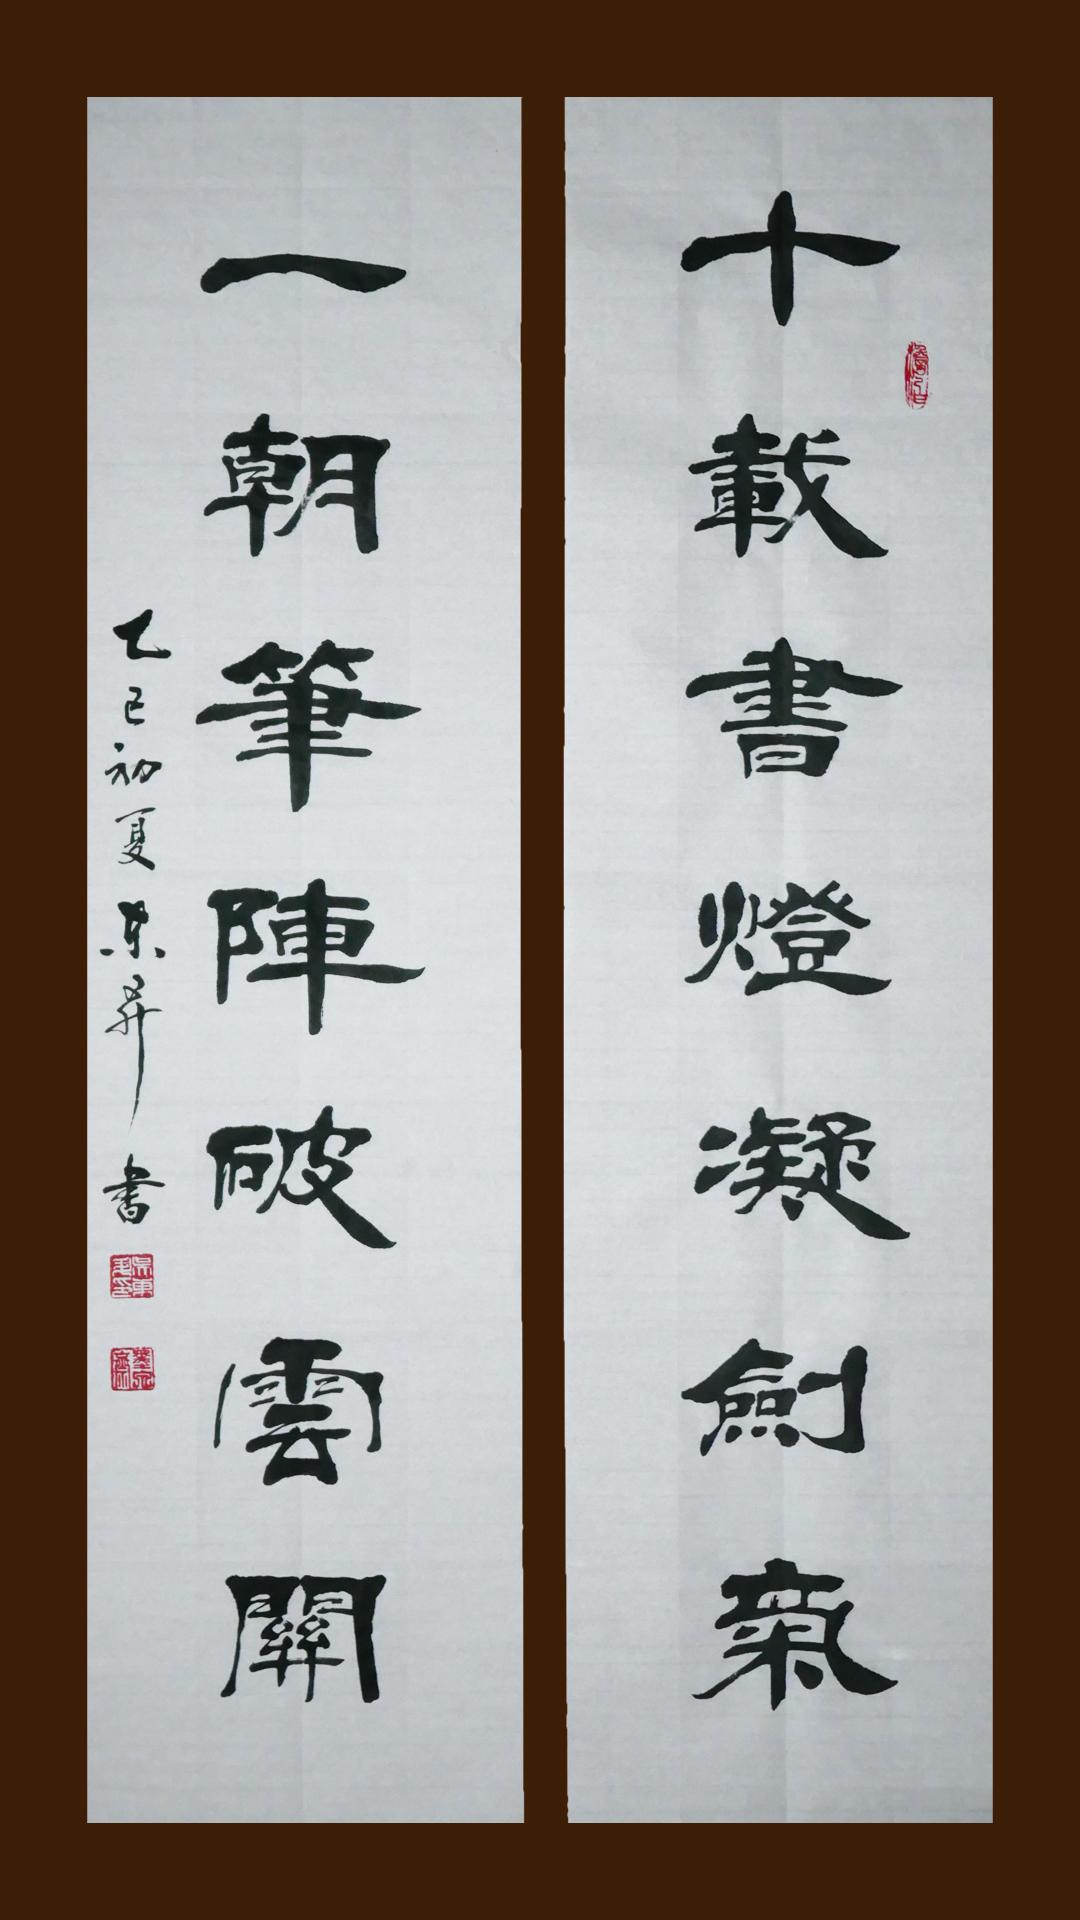 十載書燈凝劍氣
一朝筆陣破雲關
乙巳初夏東昇書